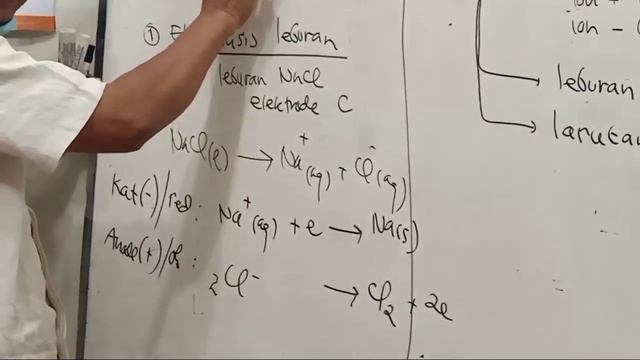 ① El sis leburan
leburan NaCl
elektrode C
NaCl(l) → Na⁺(aq) + Cl⁻(aq)
Kat(-)/red : Na⁺(aq) + e → Na(s)
Anode(+)/ :
2Cl⁻ → Cl₂ + 2e
ion -
leburan
laruta